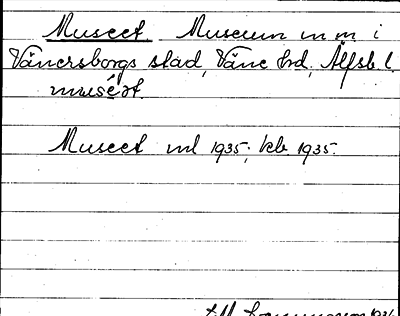 Museet Museum m.m. i
Vänersborgs stad, Väne hd, Älfsb. l.
muséet
Museet ml 1935; kb 1935.